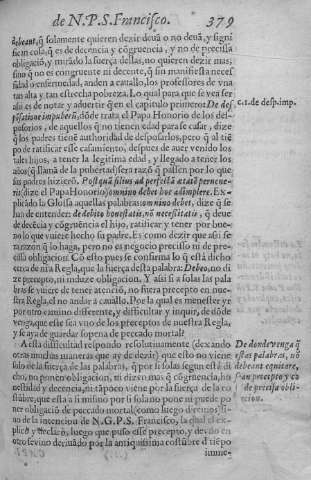 de N.P.S. Francisco. 379
debeant, q̃ solamente quieren dezir deuã o no deuã, y signi
fican cosa, q̃ es de decencia y cõgruencia, y no de precissa
obligaciõ, y mirado la fuerça dellas, no quieren dezir mas,
sino q̃ no es congruente ni decente, q̃ sin manifiesta neces
sidad o enfermedad, anden a cauallo, los professores de vna
tan alta y tan estrecha pobreza. Lo qual para que se vea ser
assi es de notar y aduertir q̃ en el capitulo primero De des
põsatione impuberũ, dõde trata el Papa Honorio de los des-
posorios, de aquellos q̃ no tienen edad para se casar, dize
q̃ los padres tiene authoridad de desposarlos, pero q̃ al tiẽ
po de ratificar esse casamiento, despues de auer venido los
tales hijos, a tener la legitima edad, y llegado a tener los
años (q̃ llamã de la pubertad) sera razõ q̃ passen por lo que
sus padres hizierõ. Postquã filius ad perfectã ætatẽ peruene-
rit; dize el Papa Honorio) omnino debet hoc adimplere. Ex-
plicãdo la Glossa aquellas palabras omnino debet, dize q̃ se
hã de entender: de debito honestatis, nõ necessitatis, q̃ deue
de decẽcia y cõgruencia el hijo, ratificar y tener por bue-
no lo que vuiere hecho su padre. Es como dezir que assi se-
ra razon q̃ lo haga, pero no es negocio precisso ni de pre-
cissa obligacion. Cõ esto pues se confirma lo q̃ està dicho
cerca de nr̃a Regla, que la fuerça desta palabra: Debeo, no di
ze precepto, ni induze obligacion. Y assi si a solas las pala
bras se vuiere de tener atenciõ, no fuera precepto en nue-
stra Regla, el no andar a cauallo. Por lo qual es menester yr
por otro camino differente, y difficultar y inquirir, de dõde
venga, que esse sea vno de los preceptos de nuestra Regla,
y se aya de guardar so pena de peccado mortal?
A esta difficultad respondo resolutiuamente (dexando
otras muchas maneras que ay de dezir) que esto no viene
solo de la fuerça de las palabras, q̃ por si solas segun està di
cho, no ponen obligacion, ni dizen mas q̃ congruencia, ho
nestidad y decencia, ni tampoco viene por la fuerça de la co
stũbre, que esta a si mismo por si solano pone ni puede po
ner obligaciõ de peccado mortal (como luego diremos) si-
no de la intencion de N.G.P.S. Francisco, la qual el ex-
plicò y declarò, luego que puso esse precepto, y deuio en
otro seviuo deriuado por la antiquissima costũbre d tiẽpo
imme-
c.1. de desp. imp.
De donde venga q̃
estas palabras, nõ
debeant equitare,
sean precepto y cõ
de precissa obli-
gacion.